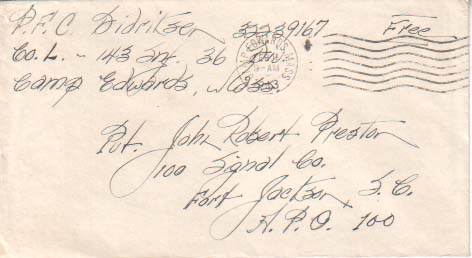 P.F.C. Didriksen 32239167 Free
Co. L - 143 Inf. 36
Camp Edwards, Mass
Pvt. John Robert Preston
100 Signal Co.
Fort Jackson, S.C.
A.P.O. 100